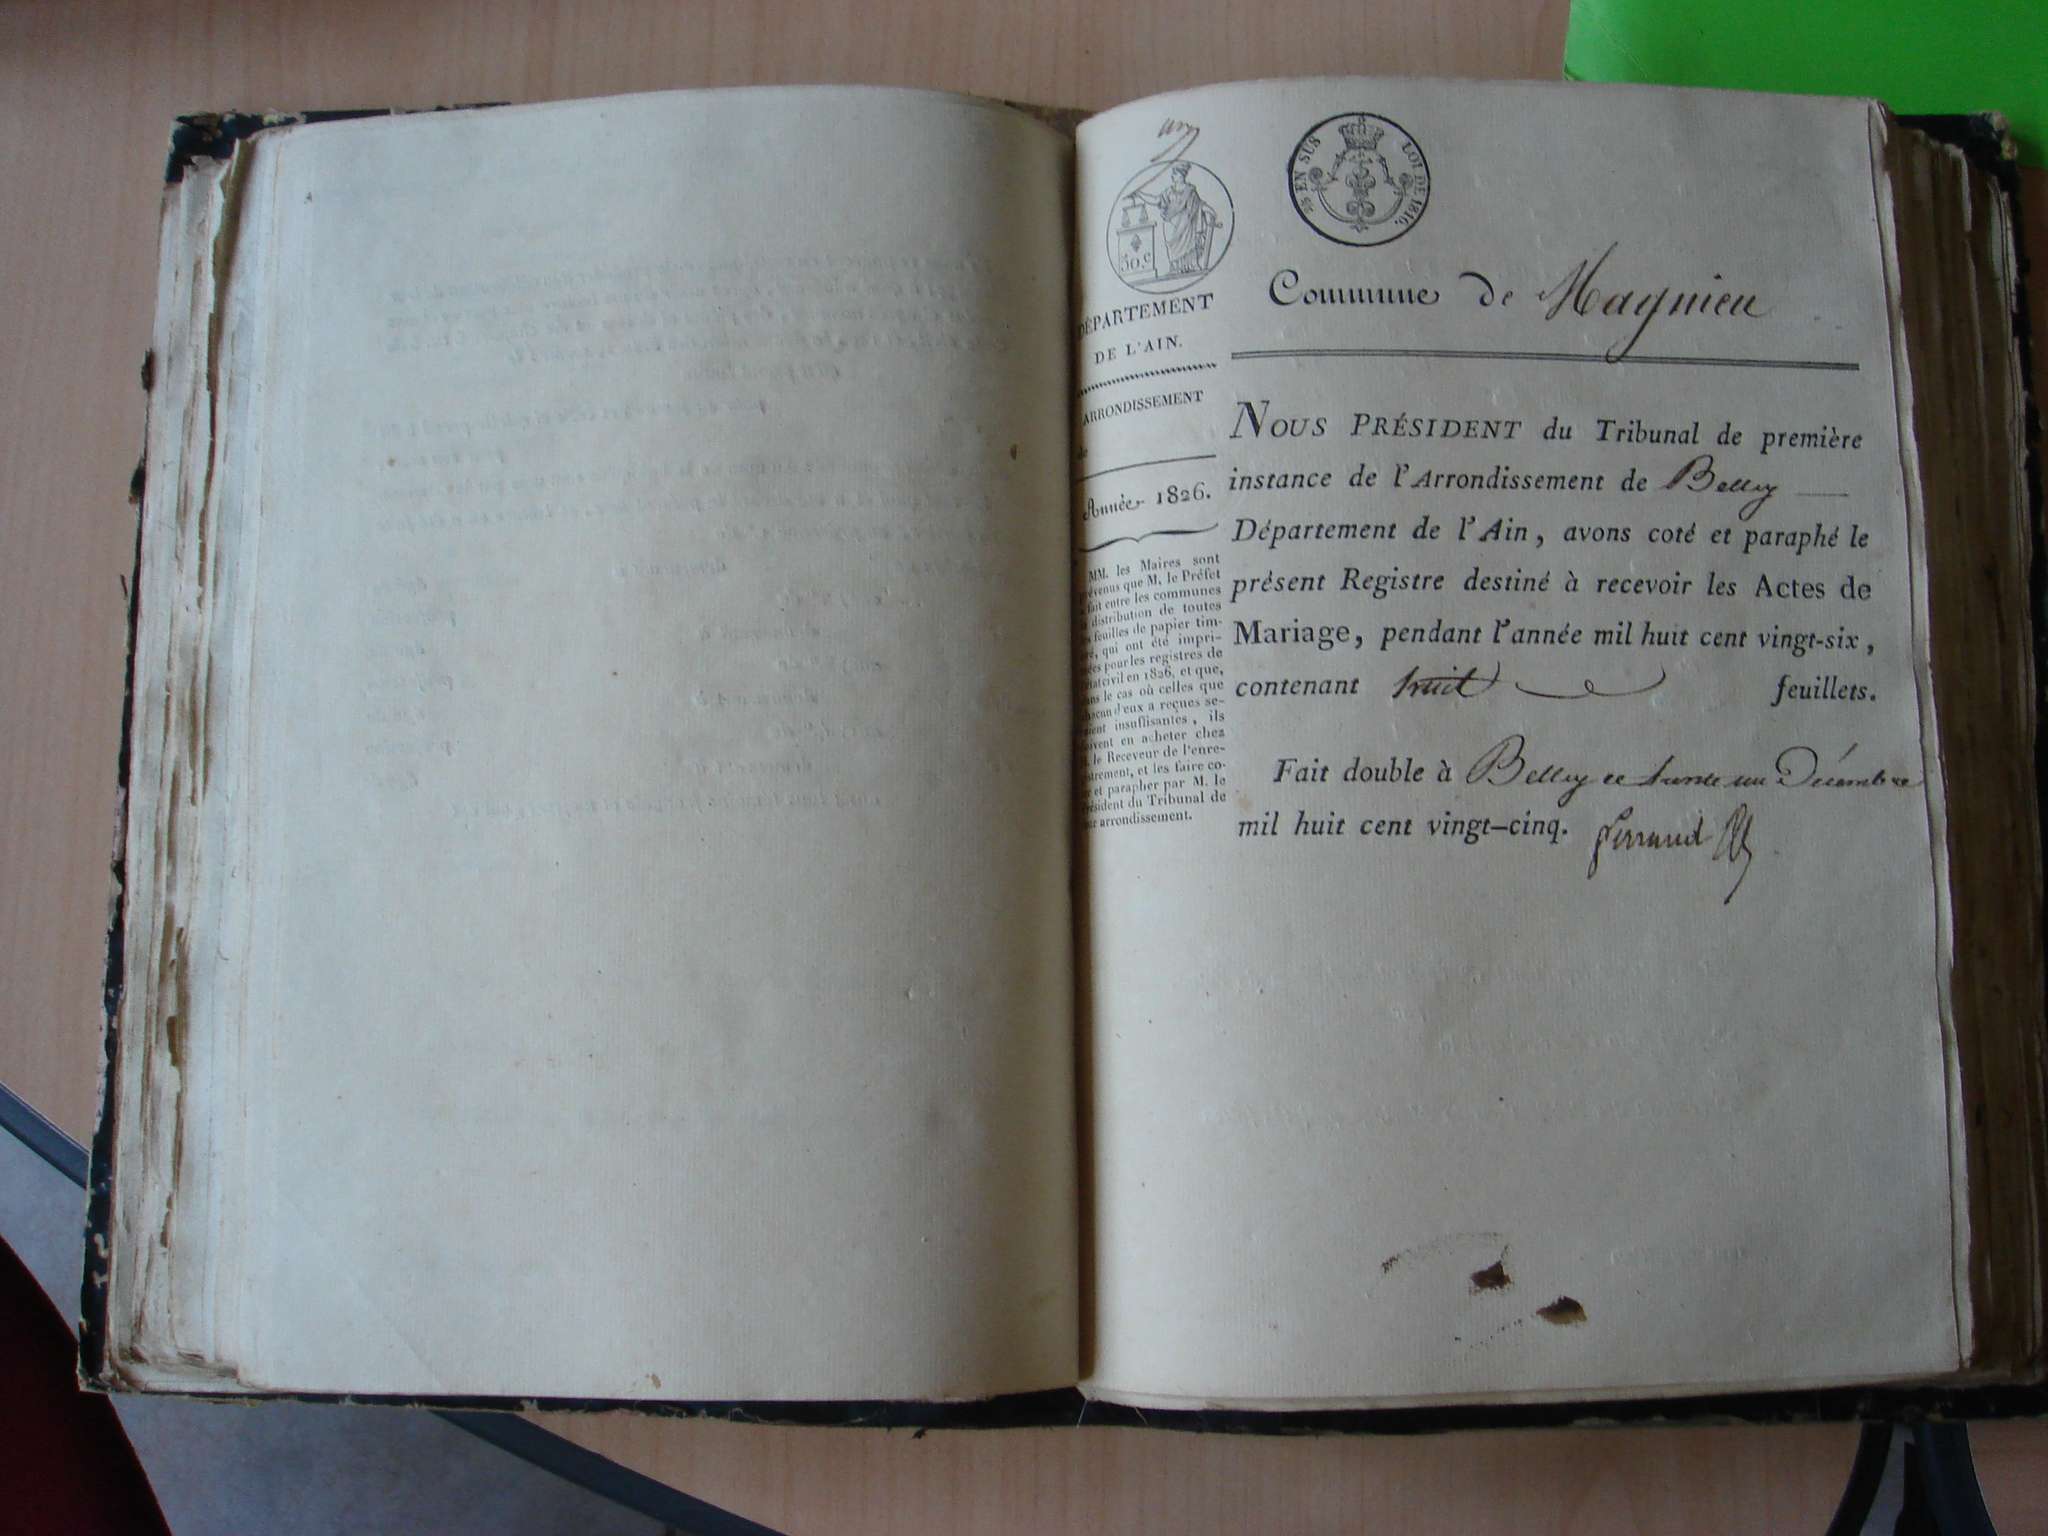 EN SUS LOI DE 1816.
50.c
DÉPARTEMENT
DE L'AIN.
ARRONDISSEMENT
de
Année 1826.
MM. les Maires sont
prévenus que M. le Préfet
fait entre les communes
la distribution de toutes
les feuilles de papier tim-
bré, qui ont été impri-
mées pour les registres de
l'état civil en 1826, et que,
dans le cas où celles que
chacun d'eux a reçues se-
raient insuffisantes, ils
doivent en acheter chez
M. le Receveur de l'enre-
gistrement, et les faire co-
ter et parapher par M. le
Président du Tribunal de
leur arrondissement.
Commune de Magnieu
NOUS PRÉSIDENT du Tribunal de première
instance de l'Arrondissement de Belley
Département de l'Ain, avons coté et paraphé le
présent Registre destiné à recevoir les Actes de
Mariage, pendant l'année mil huit cent vingt-six,
contenant huit feuillets.
Fait double à Belley ce trente un Décembre
mil huit cent vingt-cinq.